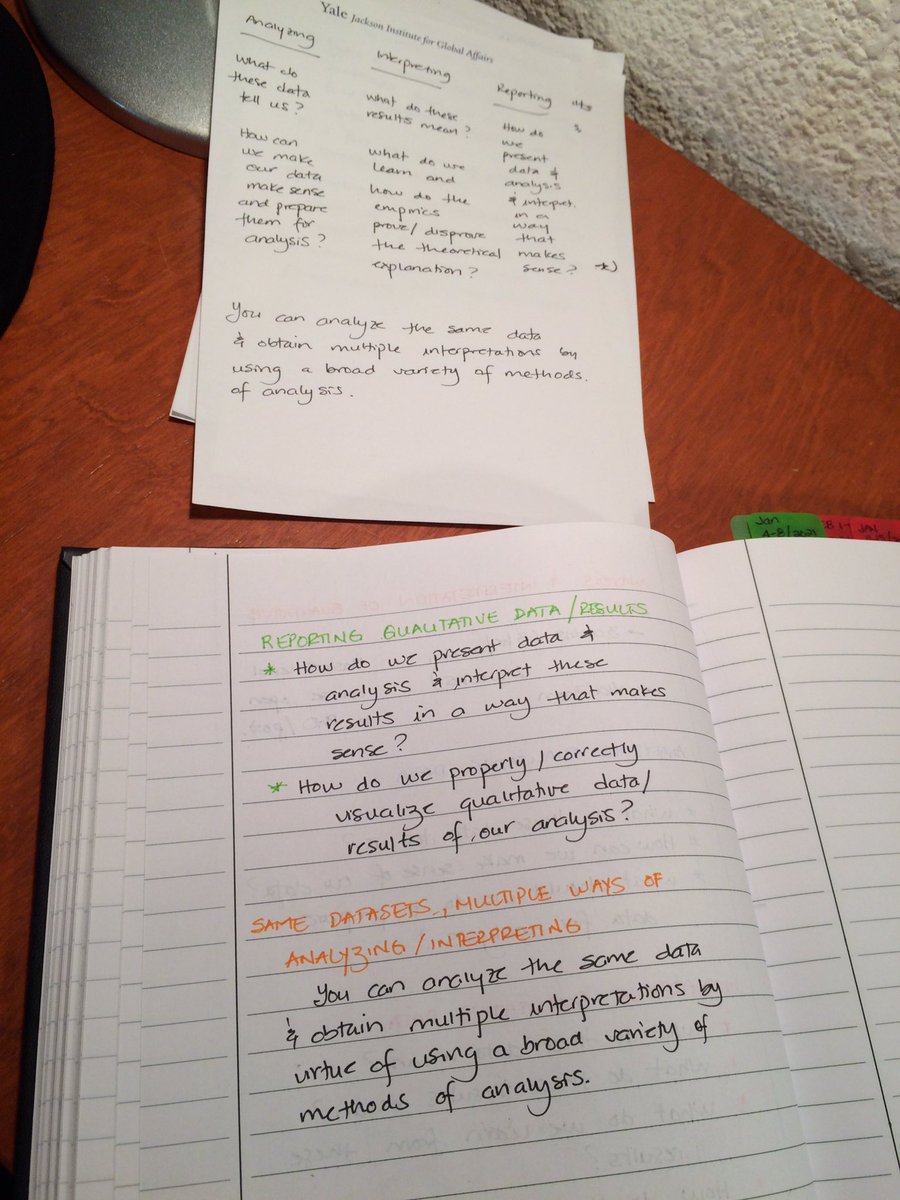 Yale Jackson Institute for Global Affairs
Analyzing
What do
these data
tell us?
How can
we make
our data
make sense
and prepare
them for
analysis?
Interpreting
what do these
results mean?
what do we
learn and
how do the
empirics
prove/disprove
the theoretical
explanation?
Reporting
How do
we
present
data &
analysis
& interpret.
in a
way
that
makes
sense?
You can analyze the same data
& obtain multiple interpretations by
using a broad variety of methods.
of analysis.
Jan
4-8/2021
JAN
REPORTING QUALITATIVE DATA/RESULTS
* How do we present data &
analysis & interpret these
results in a way that makes
sense?
* How do we properly/correctly
visualize qualitative data/
results of our analysis?
SAME DATASETS, MULTIPLE WAYS OF
ANALYZING/INTERPRETING
You can analyze the same data
& obtain multiple interpretations by
virtue of using a broad variety of
methods of analysis.